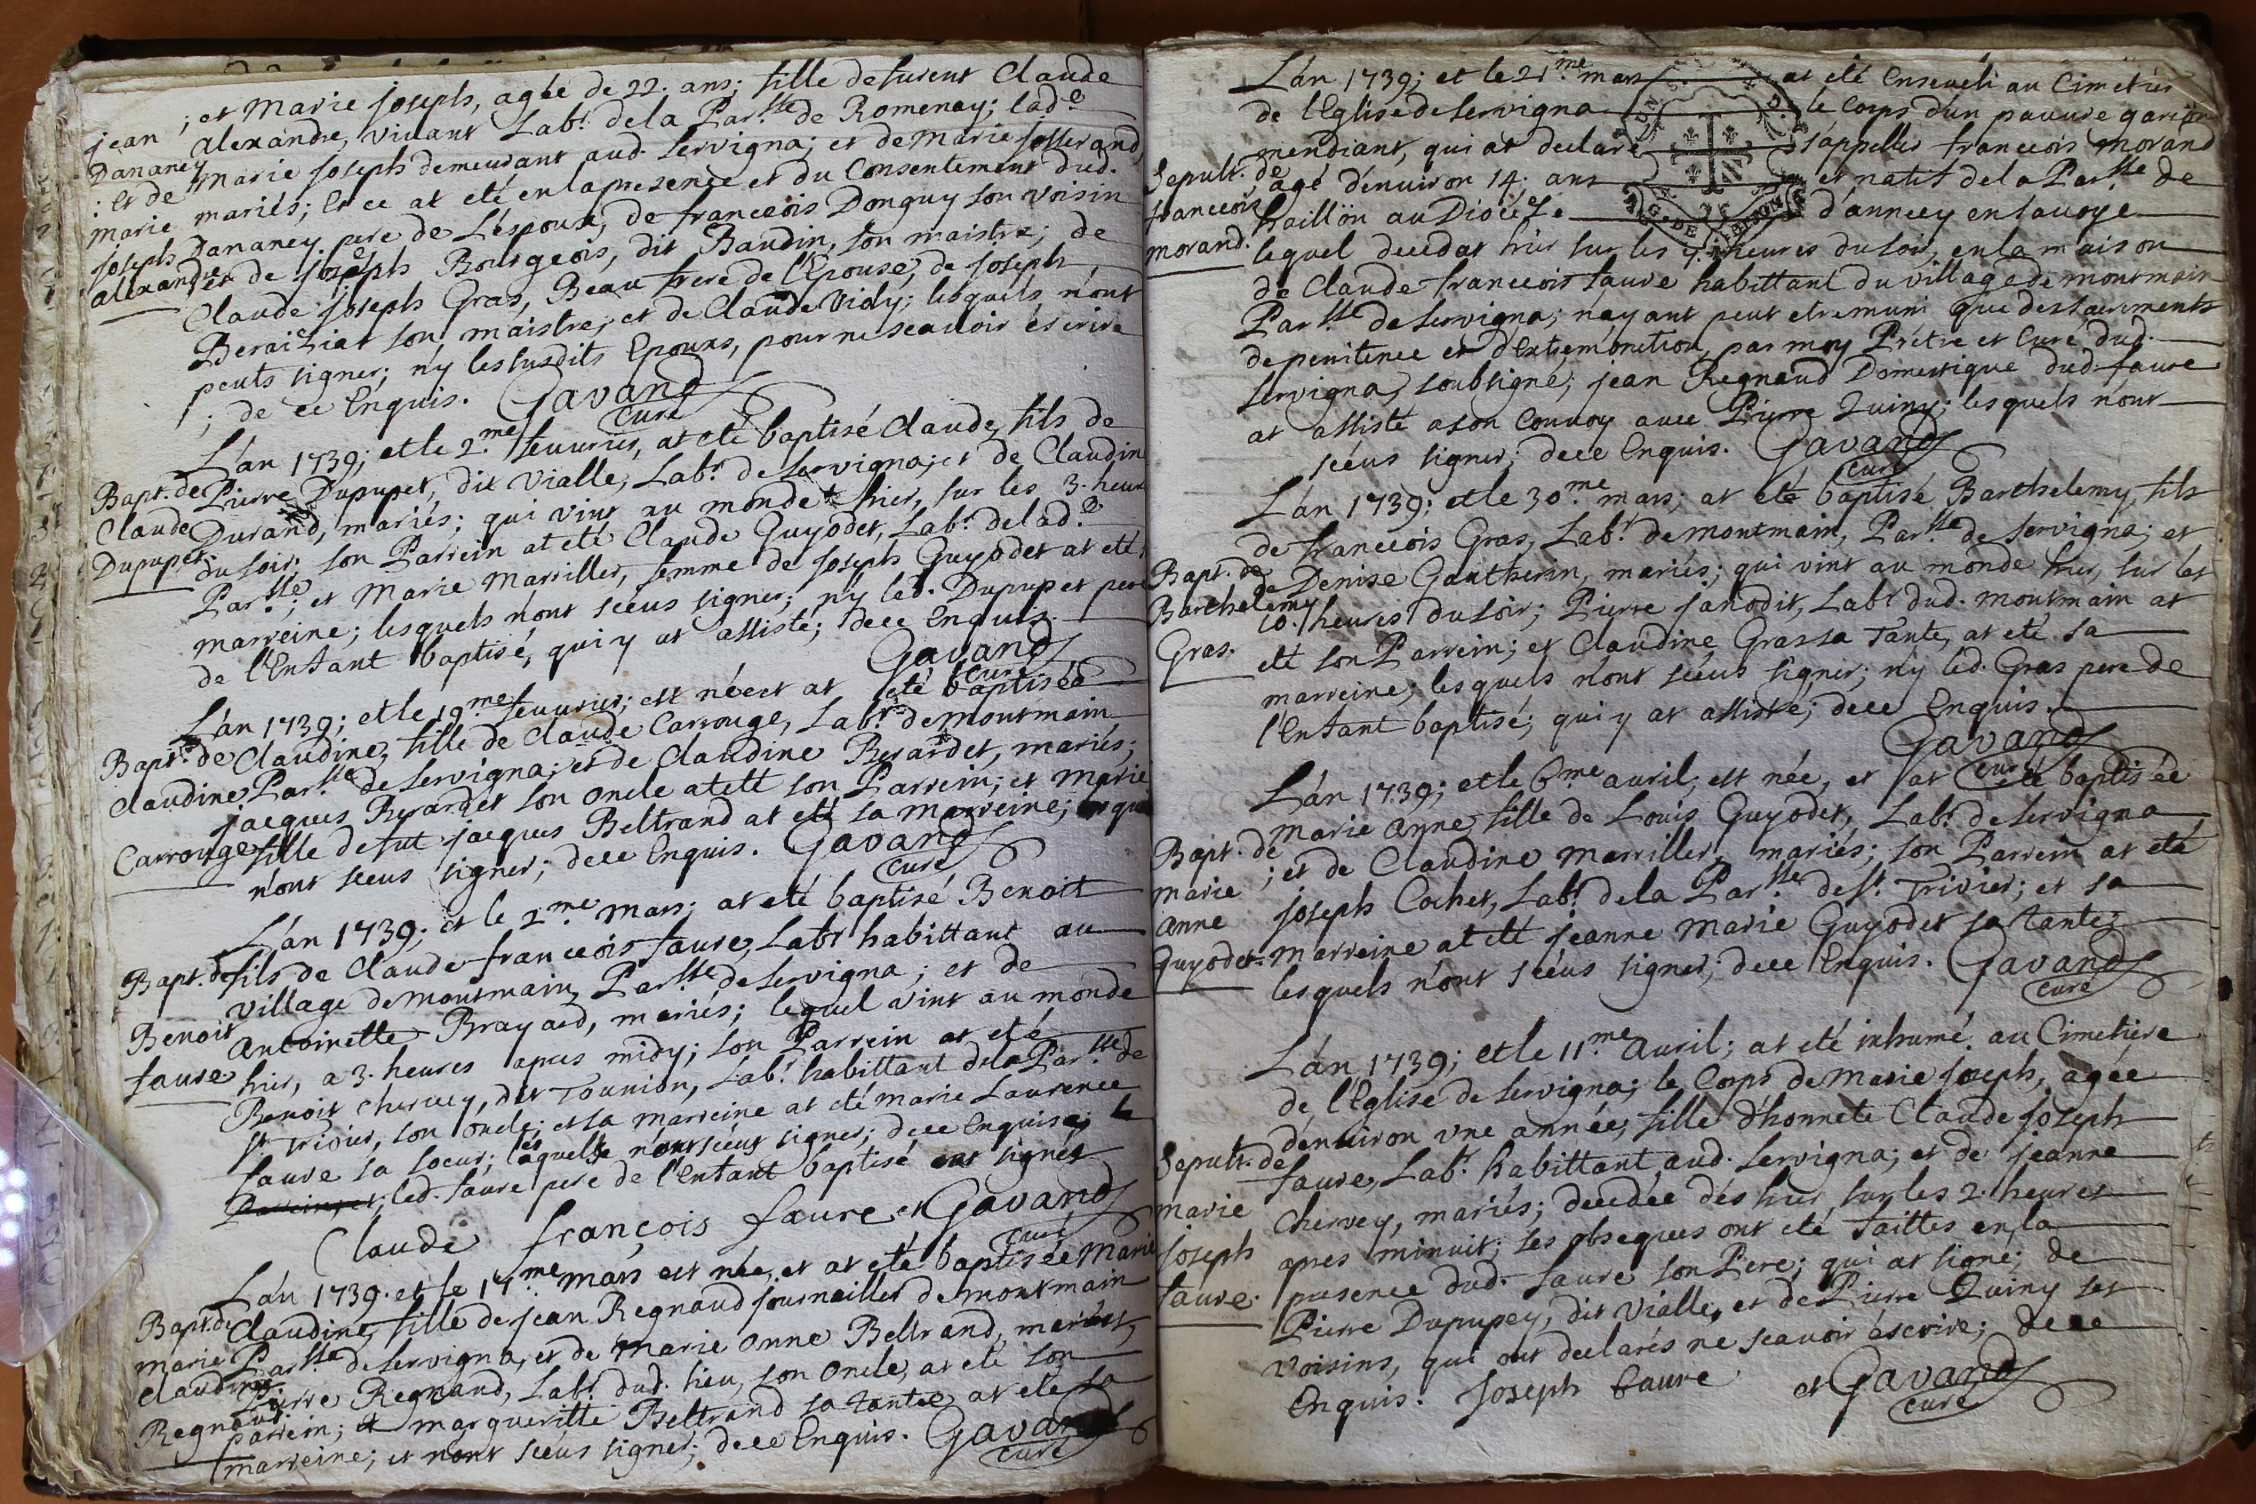 ; et Marie joseph, agée de 22. ans; fille de furent Claude
jean
Dananey
: et de
marie
joseph
alexandre
alexandre, vivant Labr. de la Parsse de Romenay; lade
marie joseph demeurant aud. Servigna; et de Marie josserand
mariés; et ce at eté en la presence et du Consentement dud.
Dananey pere de L'époux, de francois Donguy son voisin
et de joseph Bourgeois, dit Baudin, son maistre; de
Claude joseph Gras, Beau frere de l'Epouse, de joseph
Beraiziat son maistre, et de Claude Vidy; lesquels n'ont
peuts signer; n'y les susdits Epoux, pour ne scavoir éscrire
; de ce Enquis. Gavand
curé
L'an 1739; et le 2.me feuvrier, at eté baptisé Claude, fils de
Bapt. de
Claude
Dupupet
Pierre Dupupet, dit Vialle, Labr. de Servigna; et de Claudine
Durand, mariés; qui vint au monde hier, sur les 3. heures
du soir; son Parrein at eté Claude Guyodet, Labr. de lad.e
Parsse; et Marie Marriller, femme de joseph Guyodet at eté
marreine; lesquels n'ont scéus signer; n'y led. Dupupet pere
de l'Enfant baptisé, qui y at assisté; de ce Enquis.
Gavand
curé
L'an 1739; et le 19.me feuvrier; est née et at eté baptisée
Bapt. de
Claudine
Carrouge
Claudine, fille de Claude Carrouge, Labr. de montmain
Parsse de Servigna; et de Claudine Berardet, mariés;
jacques Berardet son oncle at eté son Parrein; et marie
fille de fut jacques Beltrand at eté sa marreine;
n'ont scéus signer; de ce Enquis. Gavand
curé
L'an 1739; et le 2.me mars; at eté baptisé Benoit
Bapt. de
Benoit
faure
fils de Claude francois faure, Labr. habittant au
village de montmain, Parsse de Servigna; et de
Antoinette Brayard, mariés; lequel vint au monde
hier, a 3. heures apres midy; son Parrein at eté
Benoit chervey, dit Tounion, Labr. habittant de la Parsse de
st trivier, son oncle; et sa marreine at eté marie Laurence
faure sa soeur; lesquels n'ont scéus signer; de ce Enquis; le
led. faure pere de l'Enfant baptisé signés
Claude françois faure et Gavand
curé
L'an 1739. et le 17.me mars est née, et at eté baptisée Marie
Bapt. de
marie
claudine
Regnaud
Claudine, fille de jean Regnaud journaillet de montmain
Parsse de Servigna, et de marie anne Beltrand, mariés;
Pierre Regnaud, Labr. dud. lieu, son oncle, at eté son
parrein; et margueritte Beltrand sa tante at eté sa
marreine; et n'ont scéus signer; de ce Enquis. Gavand
curé
L'an 1739; et le 21.me mars at eté Enseveli au Cimetier
de l'Eglise de Servigna le Corps d'un pauvre garçon
Sepult. de
francois
morand.
mendiant, qui at declaré s'appeller francois morand
agé d'environ 14. ans et natif de la Parsse de
haillön au Diocése d'annecy en Savoye
G. DE
lequel decedat hier sur les 7. heures du soir, en la maison
de Claude francois faure habittant du village de montmain
Parsse de Servigna; n'ayant peut etre muni que des sacrements
de penitence et d'Extremonction, par moy Prétre et Curé dud.
Servigna, soubsigné; jean Regnaud Domestique dud. faure
at assisté a son Convoy avec Pierre Quiny; lesquels n'ont
scéus signer; de ce Enquis. Gavand
curé
L'an 1739; et le 30.me mars; at eté baptisé Barthelemy, fils
Bapt. de
Barthelemy
Gras.
de francois Gras, Labr. de montmain, Parsse de Servigna; et
de Denise Gautherin, mariés; qui vint au monde hier, sur les
10. heures du soir; Pierre janodit, Labr. dud. montmain at
eté son Parrein; et Claudine Gras sa Tante, at eté sa
marreine; lesquels n'ont scéus signer; n'y led. Gras pere de
l'Enfant baptisé; qui y at assisté; de ce Enquis.
Gavand
curé
L'an 1739; et le 6.me avril, est née, et at eté baptisée
Bapt. de
marie
anne
Guyodet
marie anne, fille de Louis Guyodet, Labr. de Servigna
; et de Claudine marriller, mariés; son Parrein at eté
joseph Cochet, Labr. de la Parsse de st. Trivier; et sa
marreine at eté jeanne marie Guyodet sa tante;
lesquels n'ont scéus signer; de ce Enquis. Gavand
curé
L'an 1739; et le 11.me Avril; at eté inhumé au Cimetiere
de l'Eglise de Servigna; le Corps de marie joseph, agée
Sepult. de
marie
joseph
faure.
d'environ vne année; fille d'honneté Claude joseph
faure, Labr. habittant aud. Servigna; et de jeanne
chervey, mariés; decedée dés hier, sur les 2. heures
apres minuit; ses obseques ont eté faittes en la
presence dud. faure son Pere; qui at signé; de
Pierre Dupupey, dit Vialle, et de Pierre Quiny ses
voisins, qui ont declarés ne scavoir éscrire; de ce
Enquis. Joseph faure et Gavand
curé